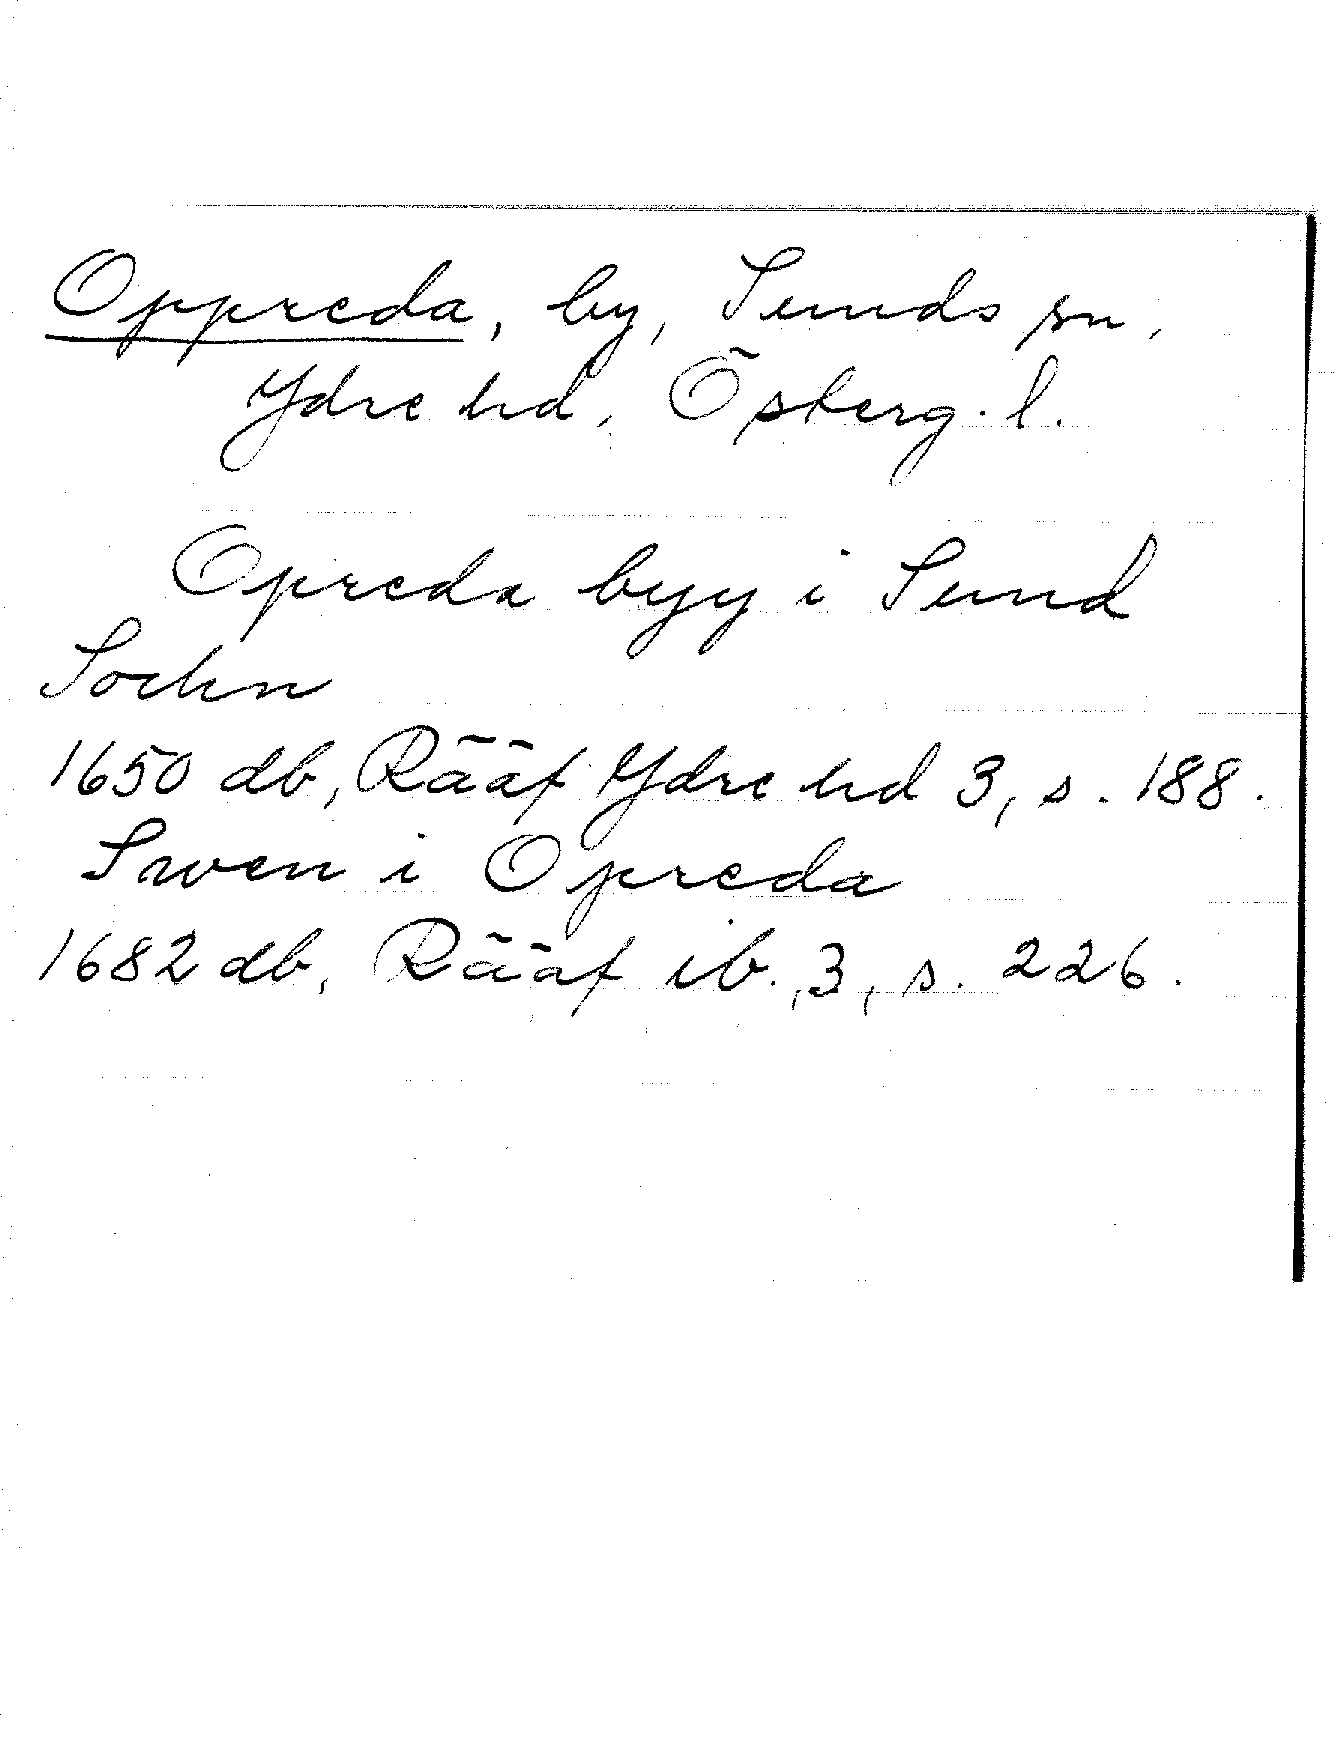 Oppreda, by, Sunds sn,
Ydre hd, Östergˑ l.
Opreda byy i Sund
Sochn
1650 db, Rääf Ydre hd 3, s. 188.
Swen i Opreda
1682 db, Rääf ib., 3, s. 226.